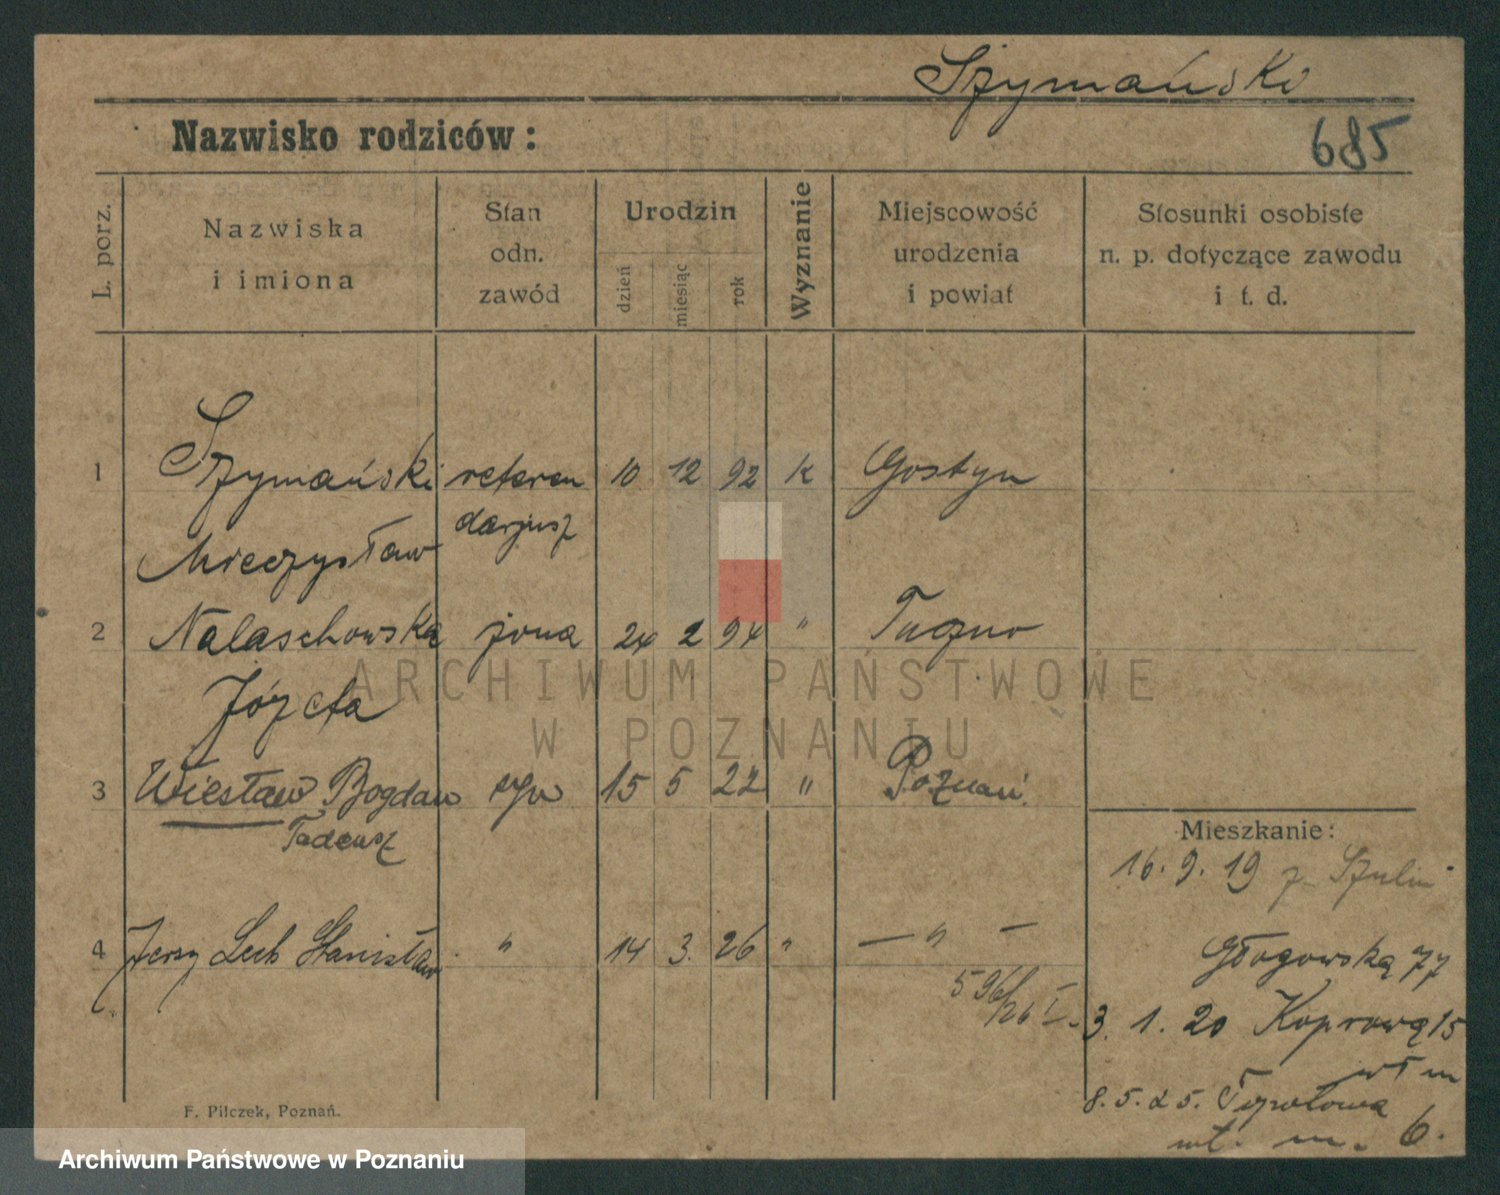 Szymański
Nazwisko rodziców:
685
L. porz.
Nazwiska
i imiona
Stan
odn.
zawód
Urodzin
dzień
miesiąc
rok
Wyznanie
Miejscowość
urodzenia
i powiat
Stosunki osobiste
n. p. dotyczące zawodu
i t. d.
1 Szymański referen 10 12 92 k Gostyn
Mieczysław darjusz
2 Nalaschowska żona 24 2 94 " Tuczno
Józefa
3 Wiesław Bogdan syn 15 5 22 " Poznań
Tadeusz
4 Jerzy Lech Stanisław " 14 3. 26 " — " —
596/26 I.
Mieszkanie:
16. 9. 19 z
Głogowska 77
3. 1. 20 15
8. 5. 25. Topolowa
wł. m. 6.
F. Pilczek, Poznań.
ARCHIWUM PAŃSTWOWE
W POZNANIU
Archiwum Państwowe w Poznaniu